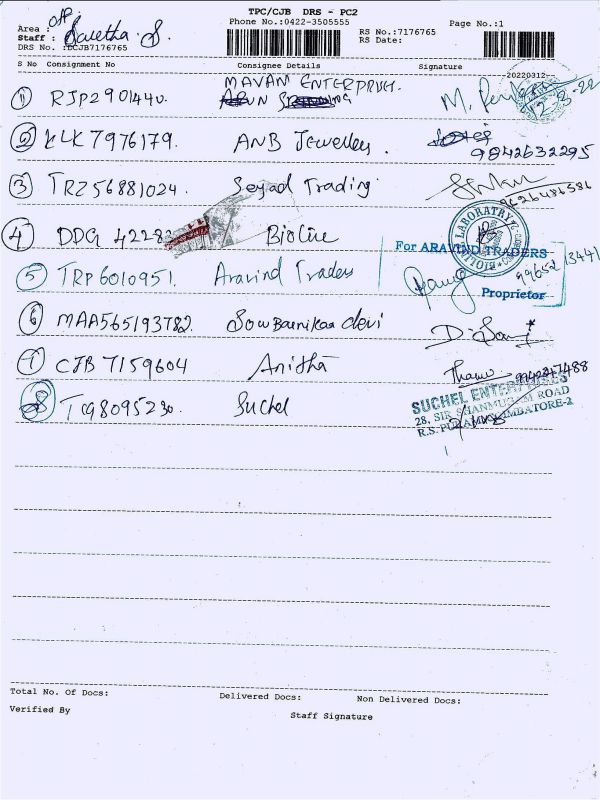 TPC/CJB DRS - PC2
Phone No.:0422-3505555
Page No.:1
Area : Off
Staff : Swetha. S.
DRS No. :DCJB7176765
RS No.:7176765
RS Date:
S No Consignment No
Consignee Details
Signature
20220312
1 RJP2901440. MAVAM ENTERPRISES.
12-3-22
2 KLK7976179. ANB Jewellery.
9842632295
3 TRZ56881024. Seyad Trading
9626486586
4 DDG 42283 Bioline
LABORATRY
For ARAVIND TRADERS
5 TRP6010951. Aravind Traders
99652 13441
Proprietor
6 MAA565193782. Sowbarnikaa devi
7 CJB 7159604 Anitha
8 TCG8095230. Suchel
SUCHEL ENTERPRISES
28, SIR SHANMUGAM ROAD
R.S. PURAM, COIMBATORE-2
Total No. Of Docs:
Delivered Docs:
Non Delivered Docs:
Verified By
Staff Signature